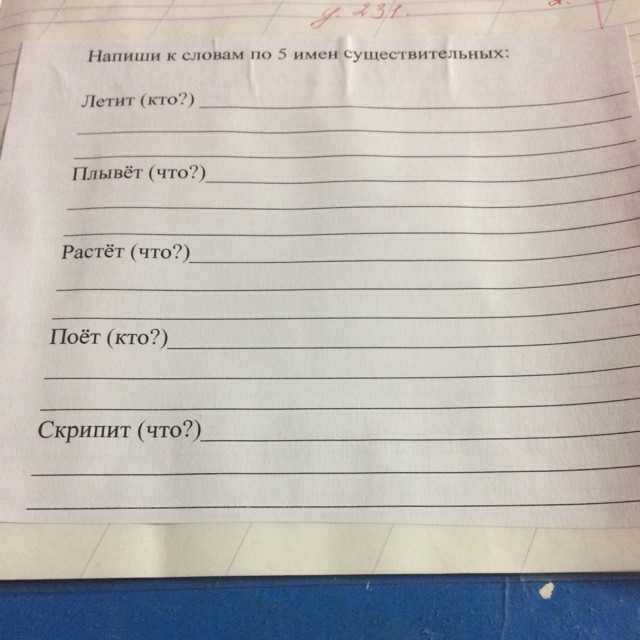 у. 231.
Напиши к словам по 5 имен существительных:
Летит (кто?)
Плывёт (что?)
Растёт (что?)
Поёт (кто?)
Скрипит (что?)